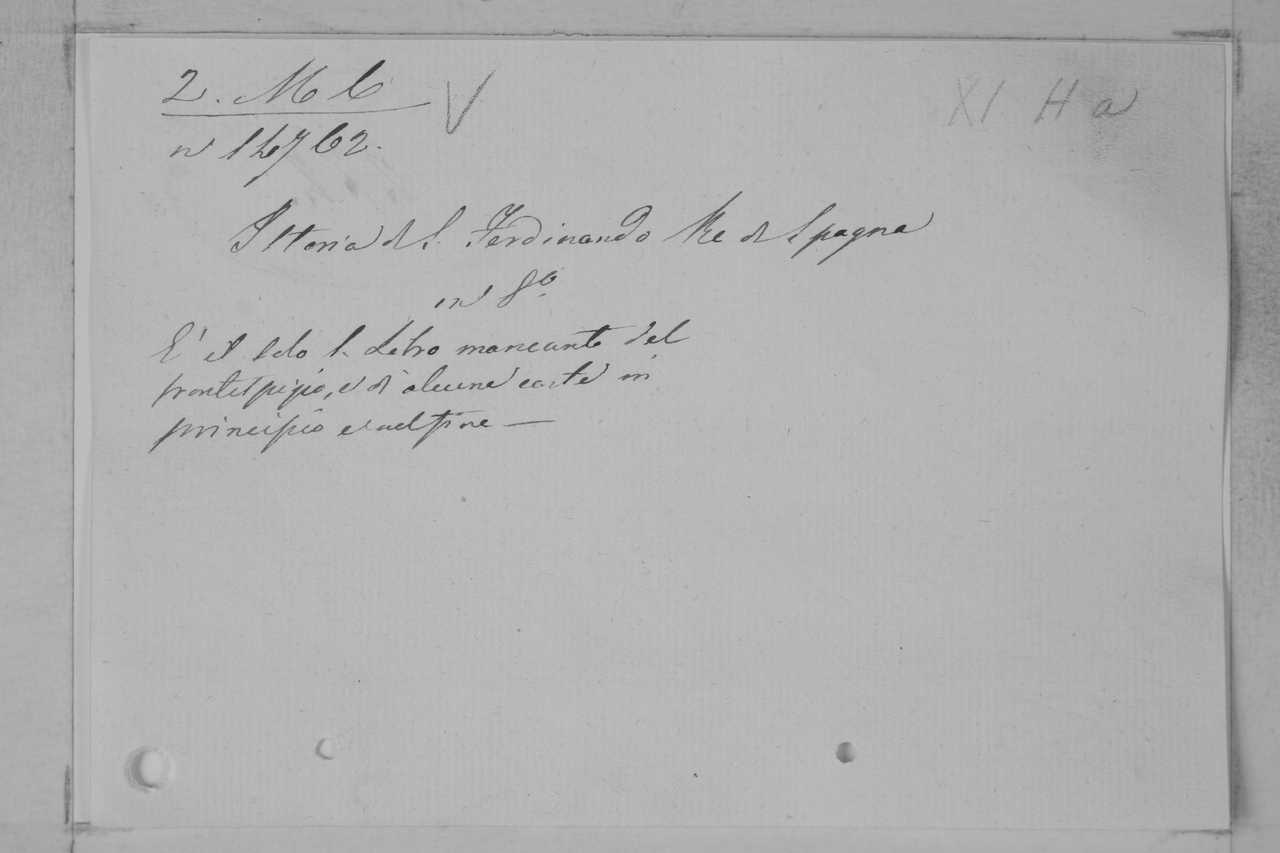 2. M 6 V XI H a
n 14762.
Istoria di S. Ferdinando Re di Spagna
in 8º.
E' il solo P. Libro mancante del
frontespizio, e di alcune carte in
principio e nel fine —